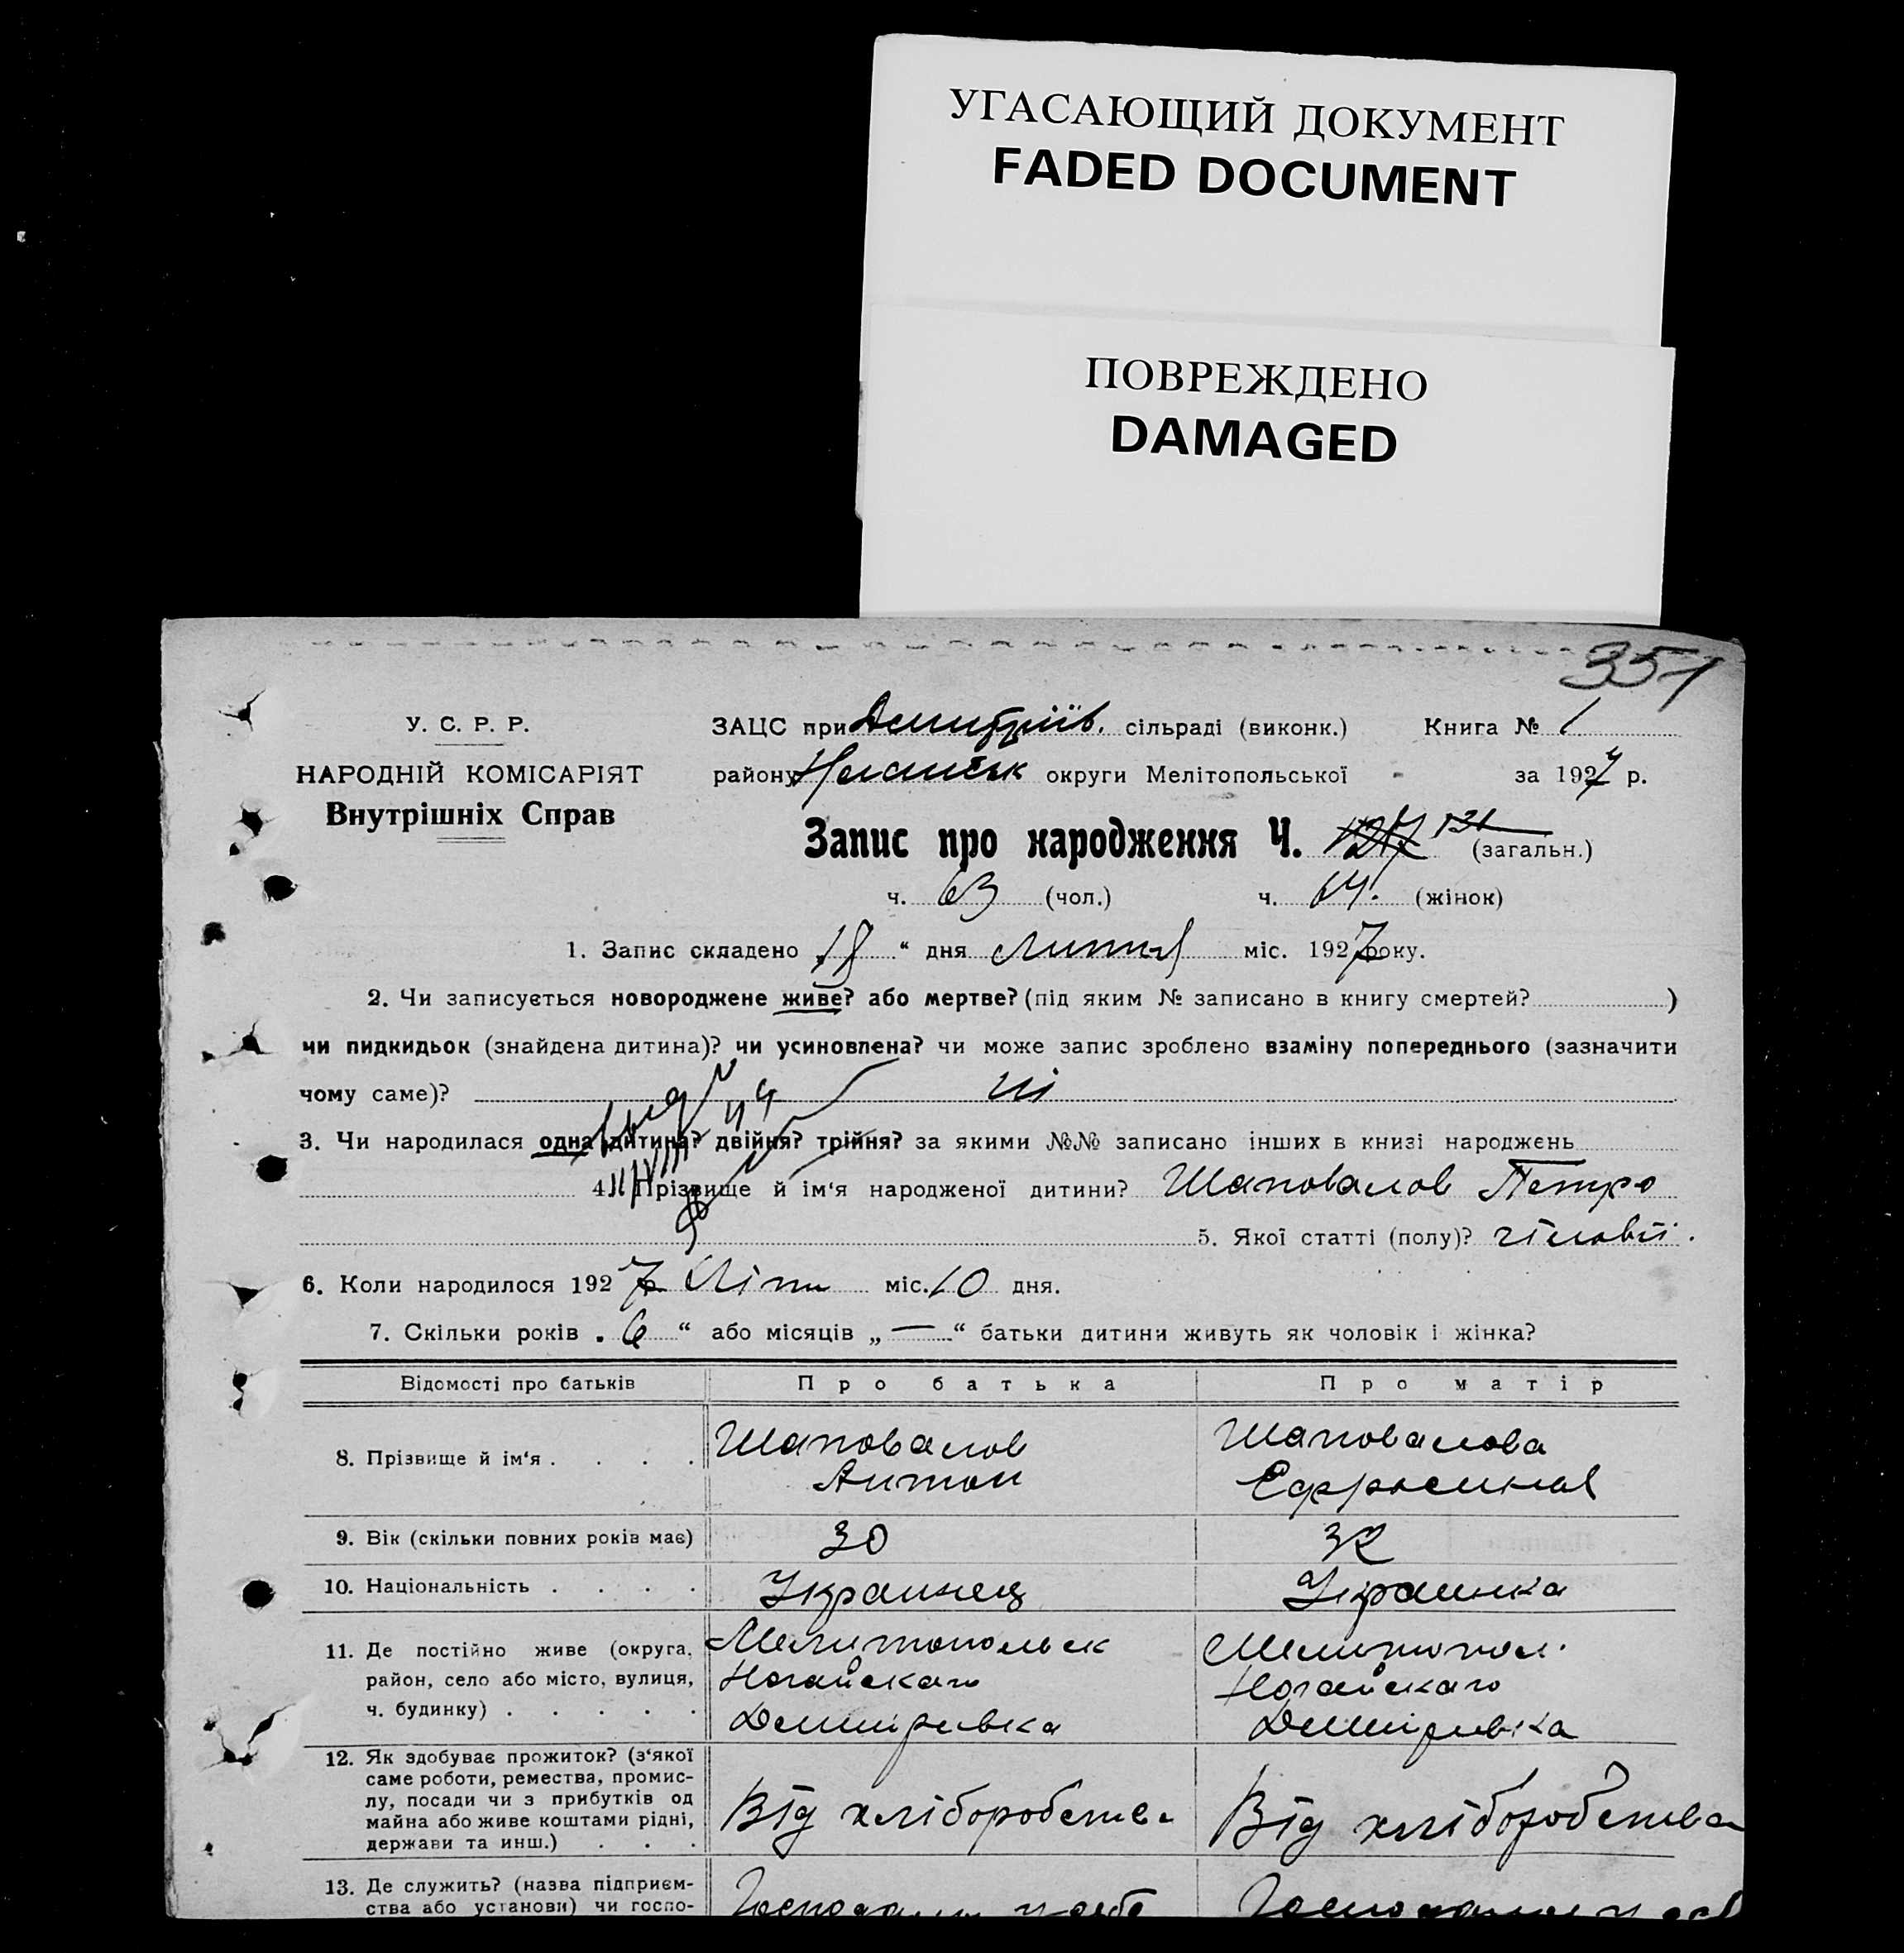 УГАСАЮЩИЙ ДОКУМЕНТ
FADED DOCUMENT
ПОВРЕЖДЕНО
DAMAGED
351
У. С. Р. Р.
НАРОДНІЙ КОМІСАРІЯТ
Внутрішніх Справ
ЗАЦС при Дмитріїв. сільраді (виконк.) Книга № 1
району округи Мелітопольської за 1927 р.
Запис про народження Ч. 131 (загальн.)
ч. 63 (чол.) ч. 64. (жінок)
1. Запис складено 18 “ дня Липня міс. 1927 року.
2. Чи записується новороджене живе? або мертве? (під яким № записано в книгу смертей? )
чи пидкидьок (знайдена дитина)? чи усиновлена? чи може запис зроблено взаміну попереднього (зазначити
чому саме)? ні
3. Чи народилася одна дитина? двійня? трійня? за якими №№ записано інших в книзі народжень
4. Прізвище й ім‘я народженої дитини? Шаповалов Петро
5. Якої статті (полу)? чіловії.
6. Коли народилося 1927 Ліпн міс. 10 дня.
7. Скільки років 6 “ або місяців „ — “ батьки дитини живуть як чоловік і жінка?
Відомості про батьків Про батька Про матір
8. Прізвище й ім‘я . . . . Шаповалов Антон Шаповалова Ефросиния
9. Вік (скільки повних років має) 30 32
10. Національність . . . . Украинец Украинка
11. Де постійно живе (округа, Мелитопольск Мелитопол.
район, село або місто, вулиця, Ногайскаго Ногайскаго
ч. будинку) . . . . . Демитривка Демитривка
12. Як здобуває прожиток? (з‘якої
саме роботи, ремества, промис-
лу, посади чи з прибутків од
майна або живе коштами рідні, Від хліборобства Від хліборобства
держави та инш.) . . .
13. Де служить? (назва підприєм-
ства або установи) чи госпо-